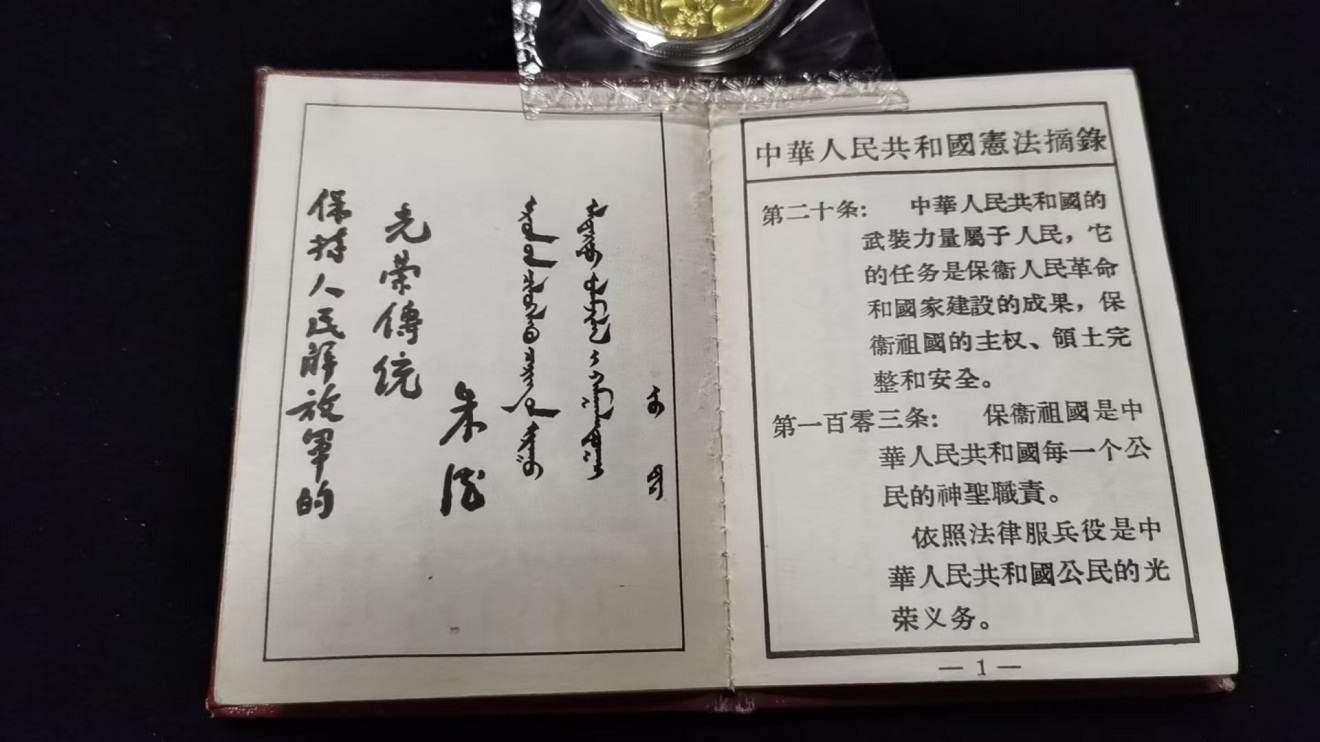 保持人民解放軍的
光荣傳统
朱德
中華人民共和國憲法摘錄
第二十条： 中華人民共和國的
武裝力量屬于人民，它
的任务是保衞人民革命
和國家建設的成果，保
衞祖國的主权、領土完
整和安全。
第一百零三条： 保衞祖國是中
華人民共和國每一个公
民的神聖職責。
依照法律服兵役是中
華人民共和國公民的光
荣义务。
— 1 —